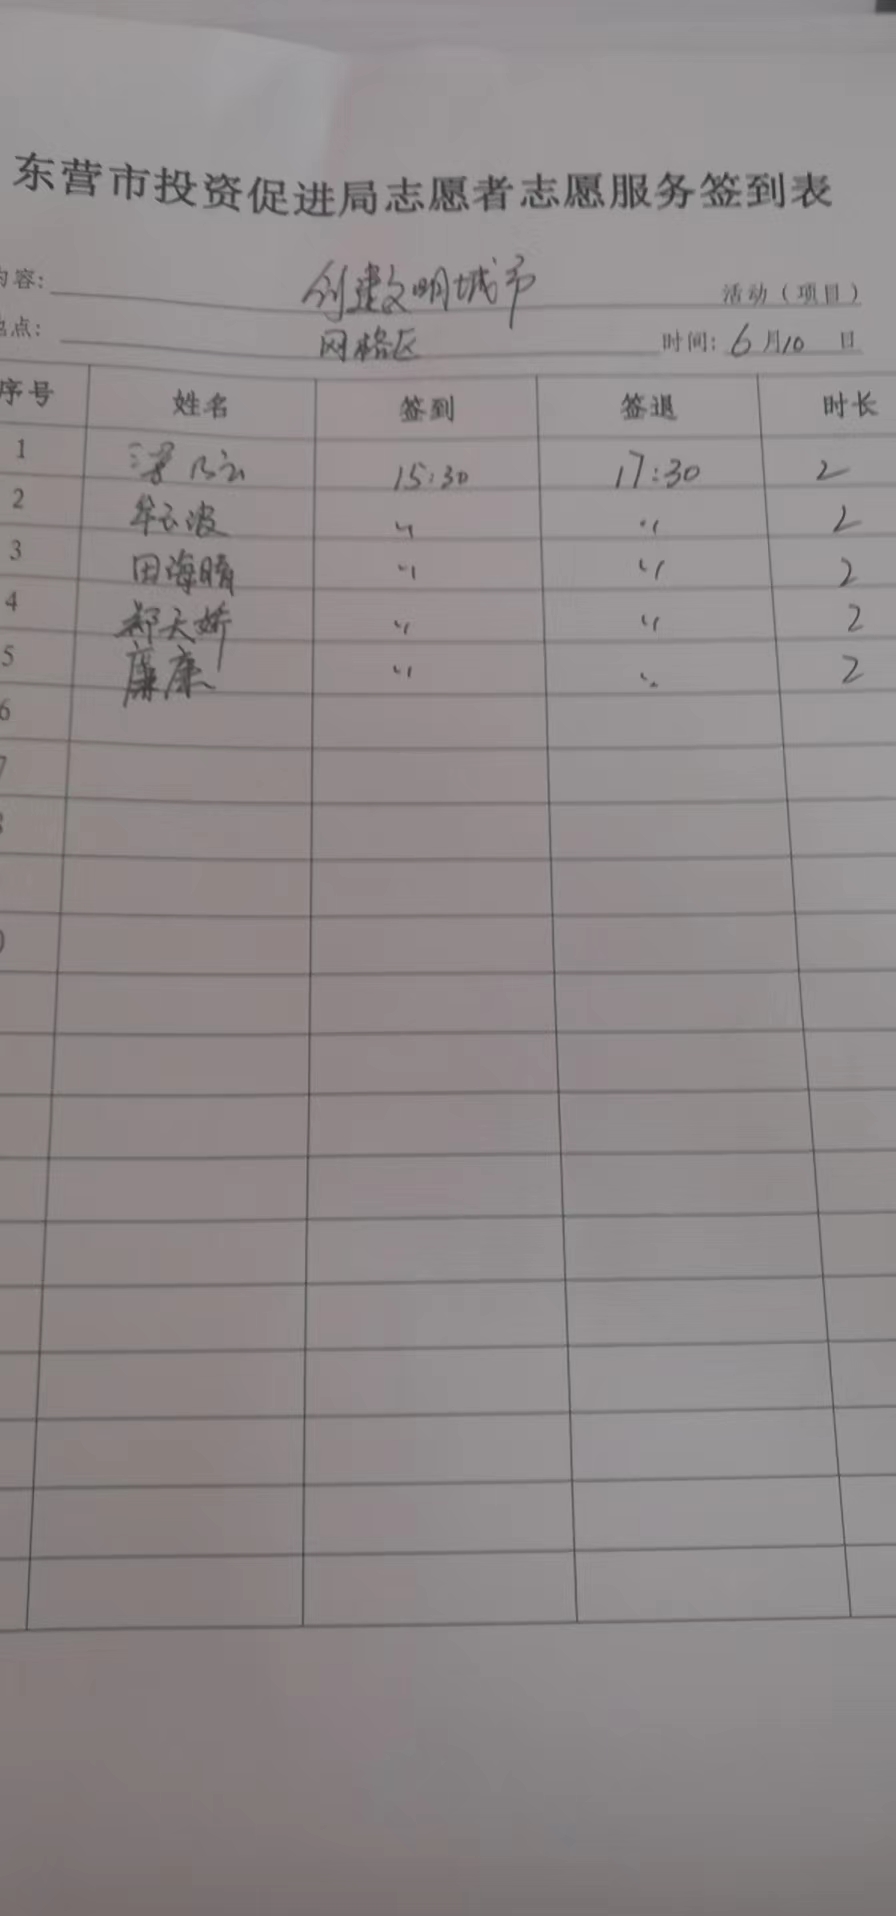 东营市投资促进局志愿者志愿服务签到表
内容: 创建文明城市 活动（项目）
地点: 网格区 时间: 6月10日
序号 姓名 签到 签退 时长
1 15:30 17:30 2
2 牟云波 〃 〃 2
3 田海晴 〃 〃 2
4 郑天娇 〃 〃 2
5 廉康 〃 〃 2
6
7
8
0